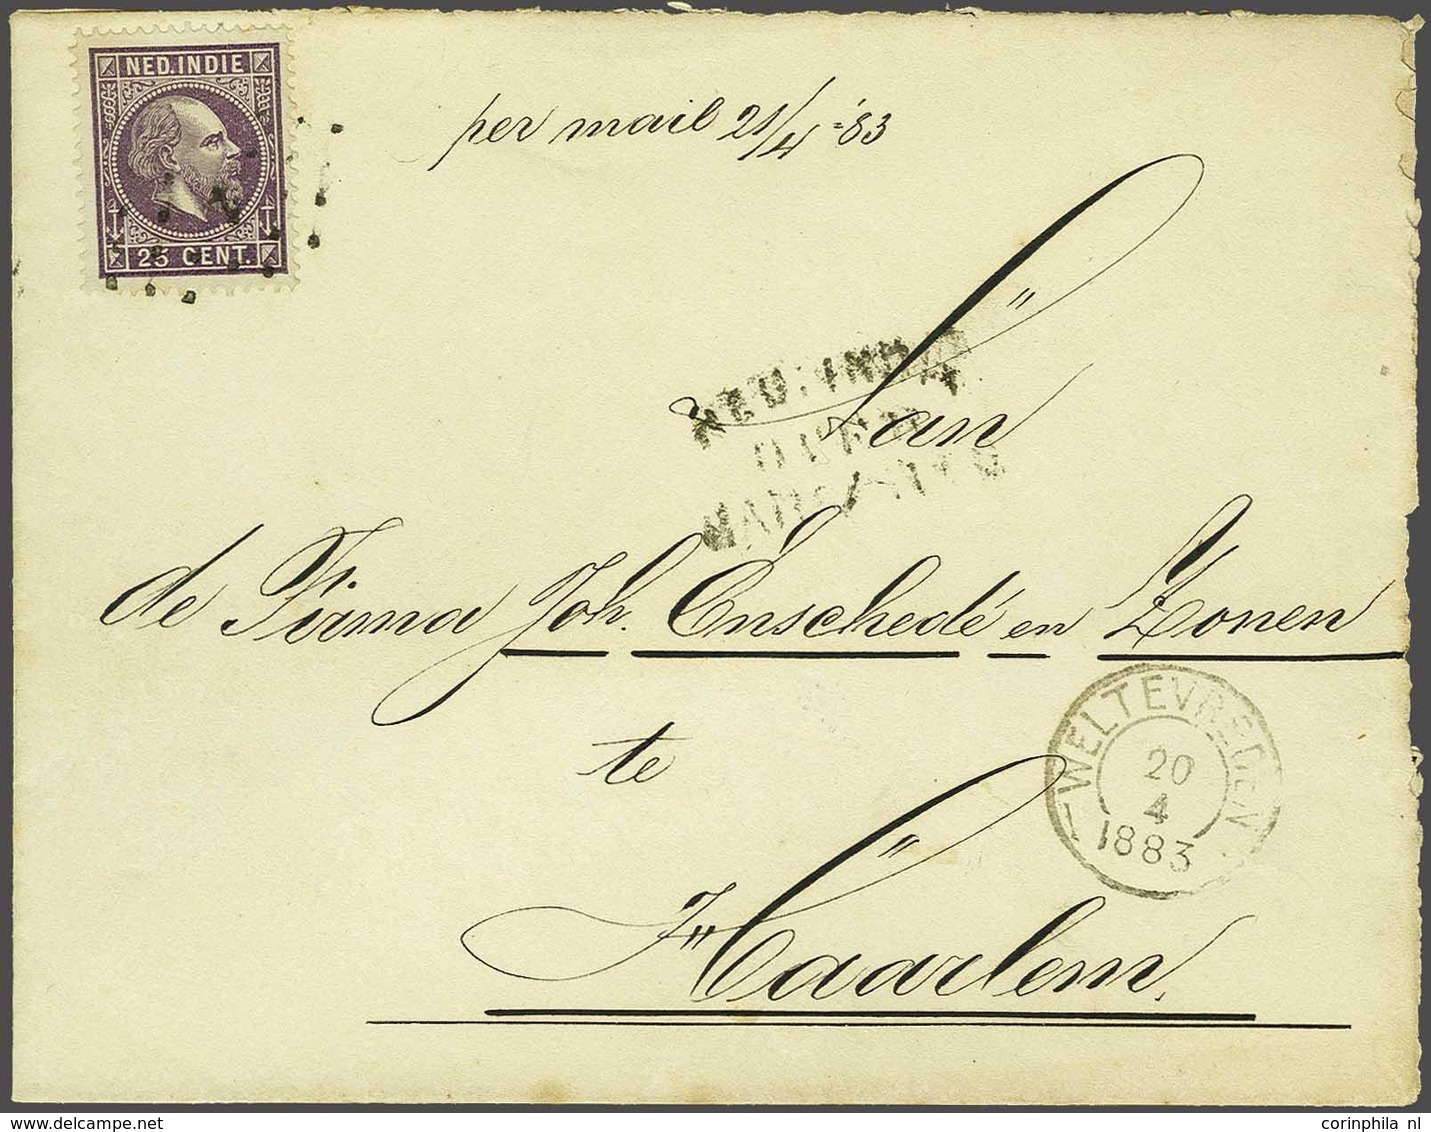 NED. INDIE
25 CENT.
per mail 21/4 - '83
Aan
NED: INDIE
de Firma Joh. Enschedé en Zonen
te
WELTEVREDEN
20
4
1883
Haarlem.
corinphila nl